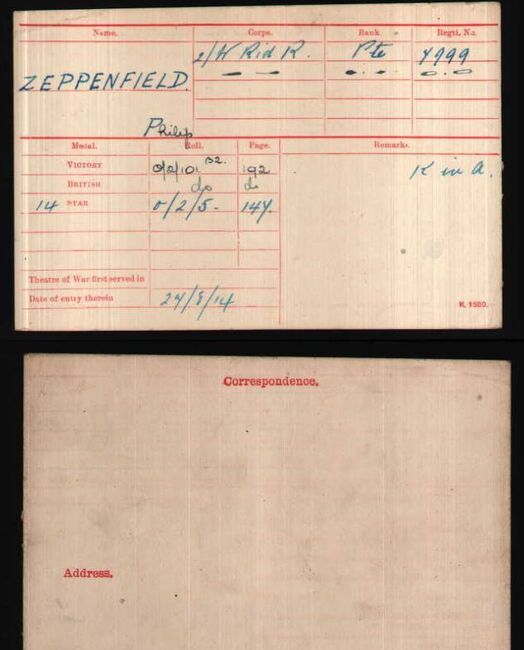 Name. Corps. Rank. Regtl. No.
2/W Rid R. Pte 7999
ZEPPENFIELD.
Philip
Medal. Roll. Page. Remarks.
VICTORY O/2/101 B2. 192 K in A.
BRITISH do do
14 STAR O/2/5. 147.
Theatre of War first served in
Date of entry therein 27/8/14
K. 1580.
Correspondence.
Address.